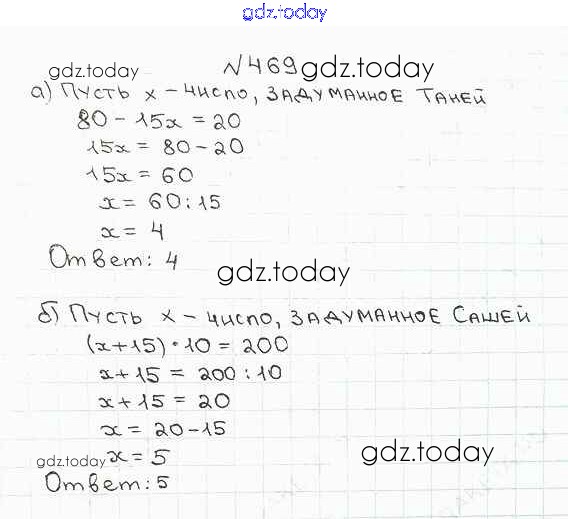 gdz.today
gdz.today №469 gdz.today
а) Пусть x – число, задуманное Таней
80 – 15x = 20
15x = 80 – 20
15x = 60
x = 60 : 15
x = 4
Ответ: 4
gdz.today
б) Пусть x – число, задуманное Сашей
(x+15) · 10 = 200
x+15 = 200 : 10
x+15 = 20
x = 20 – 15
gdz.today x = 5
gdz.today
Ответ: 5